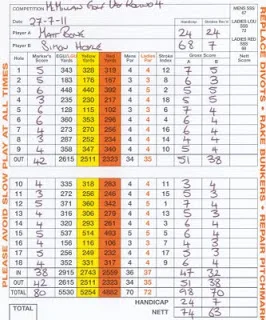 COMPETITION McMillan Golf Day Round 4
DATE 27-7-11
Player A Matt Rowe 24 24
Player B Simon Howle 68 7
MENS SSS 67
LADIES SSS 72
LADIES RED SSS 68
Nett Score
Hole Marker's Score Yellow Yards Red Yards Mens Par Ladies Par Stroke Index Gross Score A B
1 5 343 328 318 4 4 12 7 5
2 5 183 176 157 3 3 8 6 3
3 6 448 440 392 4 5 2 5 5
4 3 235 230 217 4 4 18 5 5
5 6 128 115 102 3 3 6 7 4
6 6 360 353 296 4 4 4 6 4
7 4 273 270 256 4 4 16 6 4
8 3 287 252 234 4 4 14 4 4
9 4 358 347 340 4 4 10 5 4
OUT 42 2615 2511 2323 34 35 51 38
10 4 335 318 263 4 4 11 3 4
11 3 272 256 246 4 4 15 5 3
12 5 371 360 342 4 5 1 7 4
13 4 316 306 279 4 4 13 5 3
14 4 320 293 261 4 4 3 6 4
15 5 537 514 463 5 5 5 6 5
16 4 156 116 106 3 3 7 4 3
17 5 256 249 232 4 4 17 5 3
18 4 352 331 317 4 4 9 6 4
IN 38 2915 2743 2559 36 37 47 32
OUT 42 2615 2511 2323 34 35 51 38
TOTAL 80 5530 5254 4882 70 72 98 70
HANDICAP 24 7
TOTAL NETT 74 63
PLEASE AVOID SLOW PLAY AT ALL TIMES
REPLACE DIVOTS • RAKE BUNKERS • REPAIR PITCHMAR